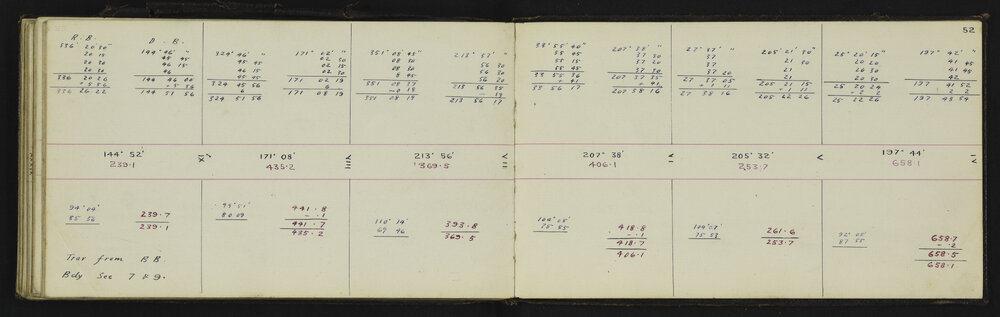 52
R. B. D. B.
336° 20 30" 144° 46' "
20 15 45 45
20 30 46 15
20 30 46
336 20 26 144 46 00
+ 5 56 + 5 56
336 26 22 144 51 56
324° 46' " 171° 02' "
45 45 02 30
46 15 02 15
45 45 02 30
324 45 56 171 02 19
6 6
324 51 56 171 08 19
351° 08' 45" 213° 57' "
08 30 56 30
08 30 56 30
8 45 56 20
351 08 37
351 08 19 213 56 17
33° 55' 40" 207° 38' "
55 45 37 30
55 15 37 20
55 45 37 30
33 55 36 207 37 35
+ 41 + 41
33 56 17 207 38 16
27° 37' " 205° 21' 30"
37 21
37 21 30
37 20 21
27 37 05 205 21 15
+ 1 11 + 1 11
27 38 16 205 22 26
25° 20' 15" 197° 42' "
20 15 41 45
20 30 41 45
20 30 42
25 20 24 197 41 52
+ 2 2 2 2
25 22 26 197 43 54
144° 52' 171° 08' 213° 56' 207° 38' 205° 32' 197° 44'
239.1 XI 435.2 VIII 369.5 VII 406.1 VI 253.7 V 658.1 IV
94° 04' 239.7
85 56 239.1
99° 51' 441.8
80 09 - .1
441.7
435.2
110° 14' 393.8
69 46 369.5
104° 05' 418.8
75 55 - .1
418.7
406.1
104° 07' 261.6
75 53 253.7
92° 05' 658.7
87 55 - .2
658.5
658.1
Trav from B B.
Bdy See 7 & 9.